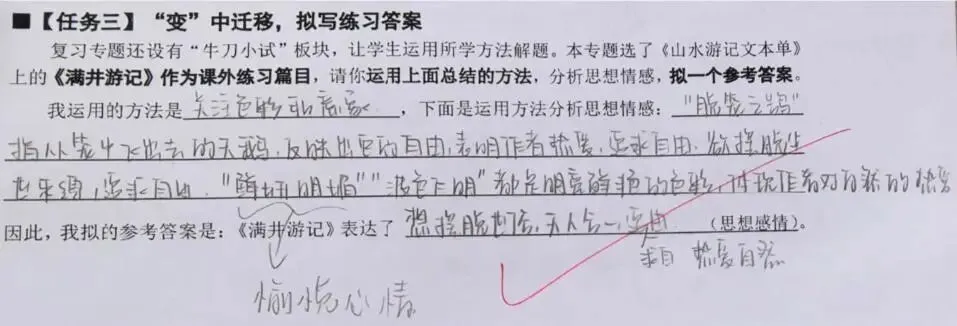 ■【任务三】“变”中迁移，拟写练习答案
复习专题还设有“牛刀小试”板块，让学生运用所学方法解题。本专题选了《山水游记文本单》
上的《满井游记》作为课外练习篇目，请你运用上面总结的方法，分析思想情感，拟一个参考答案。
我运用的方法是 关注色彩和意象，下面是运用方法分析思想情感：“脱笼之鹄”
指从笼中飞出去的天鹅，反映出它的自由，表明作者热爱、追求自由，欲摆脱
世俗，追求自由。“鲜妍明媚”“波色乍明”都是明亮鲜艳的色彩，体现作者对自然的热爱
因此，我拟的参考答案是：《满井游记》表达了 想摆脱世俗，天人合一，（思想感情）。
求自由 热爱自然
愉悦心情